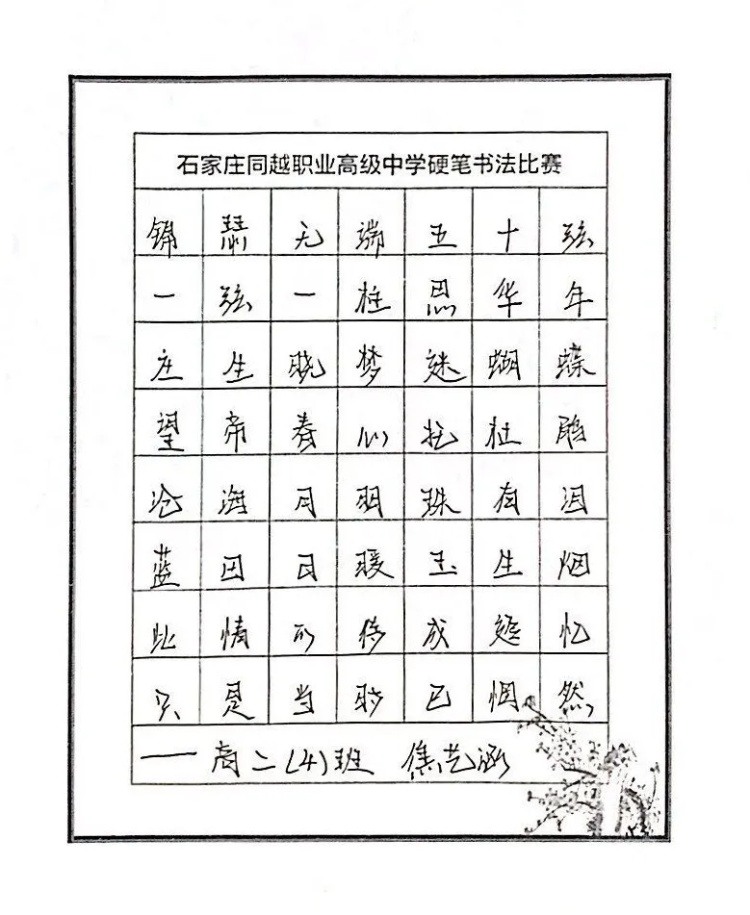 石家庄同越职业高级中学硬笔书法比赛
锦瑟无端五十弦
一弦一柱思华年
庄生晓梦迷蝴蝶
望帝春心托杜鹃
沧海月明珠有泪
蓝田日暖玉生烟
此情可待成追忆
只是当时已惘然
——高二(4)班 焦艺涵